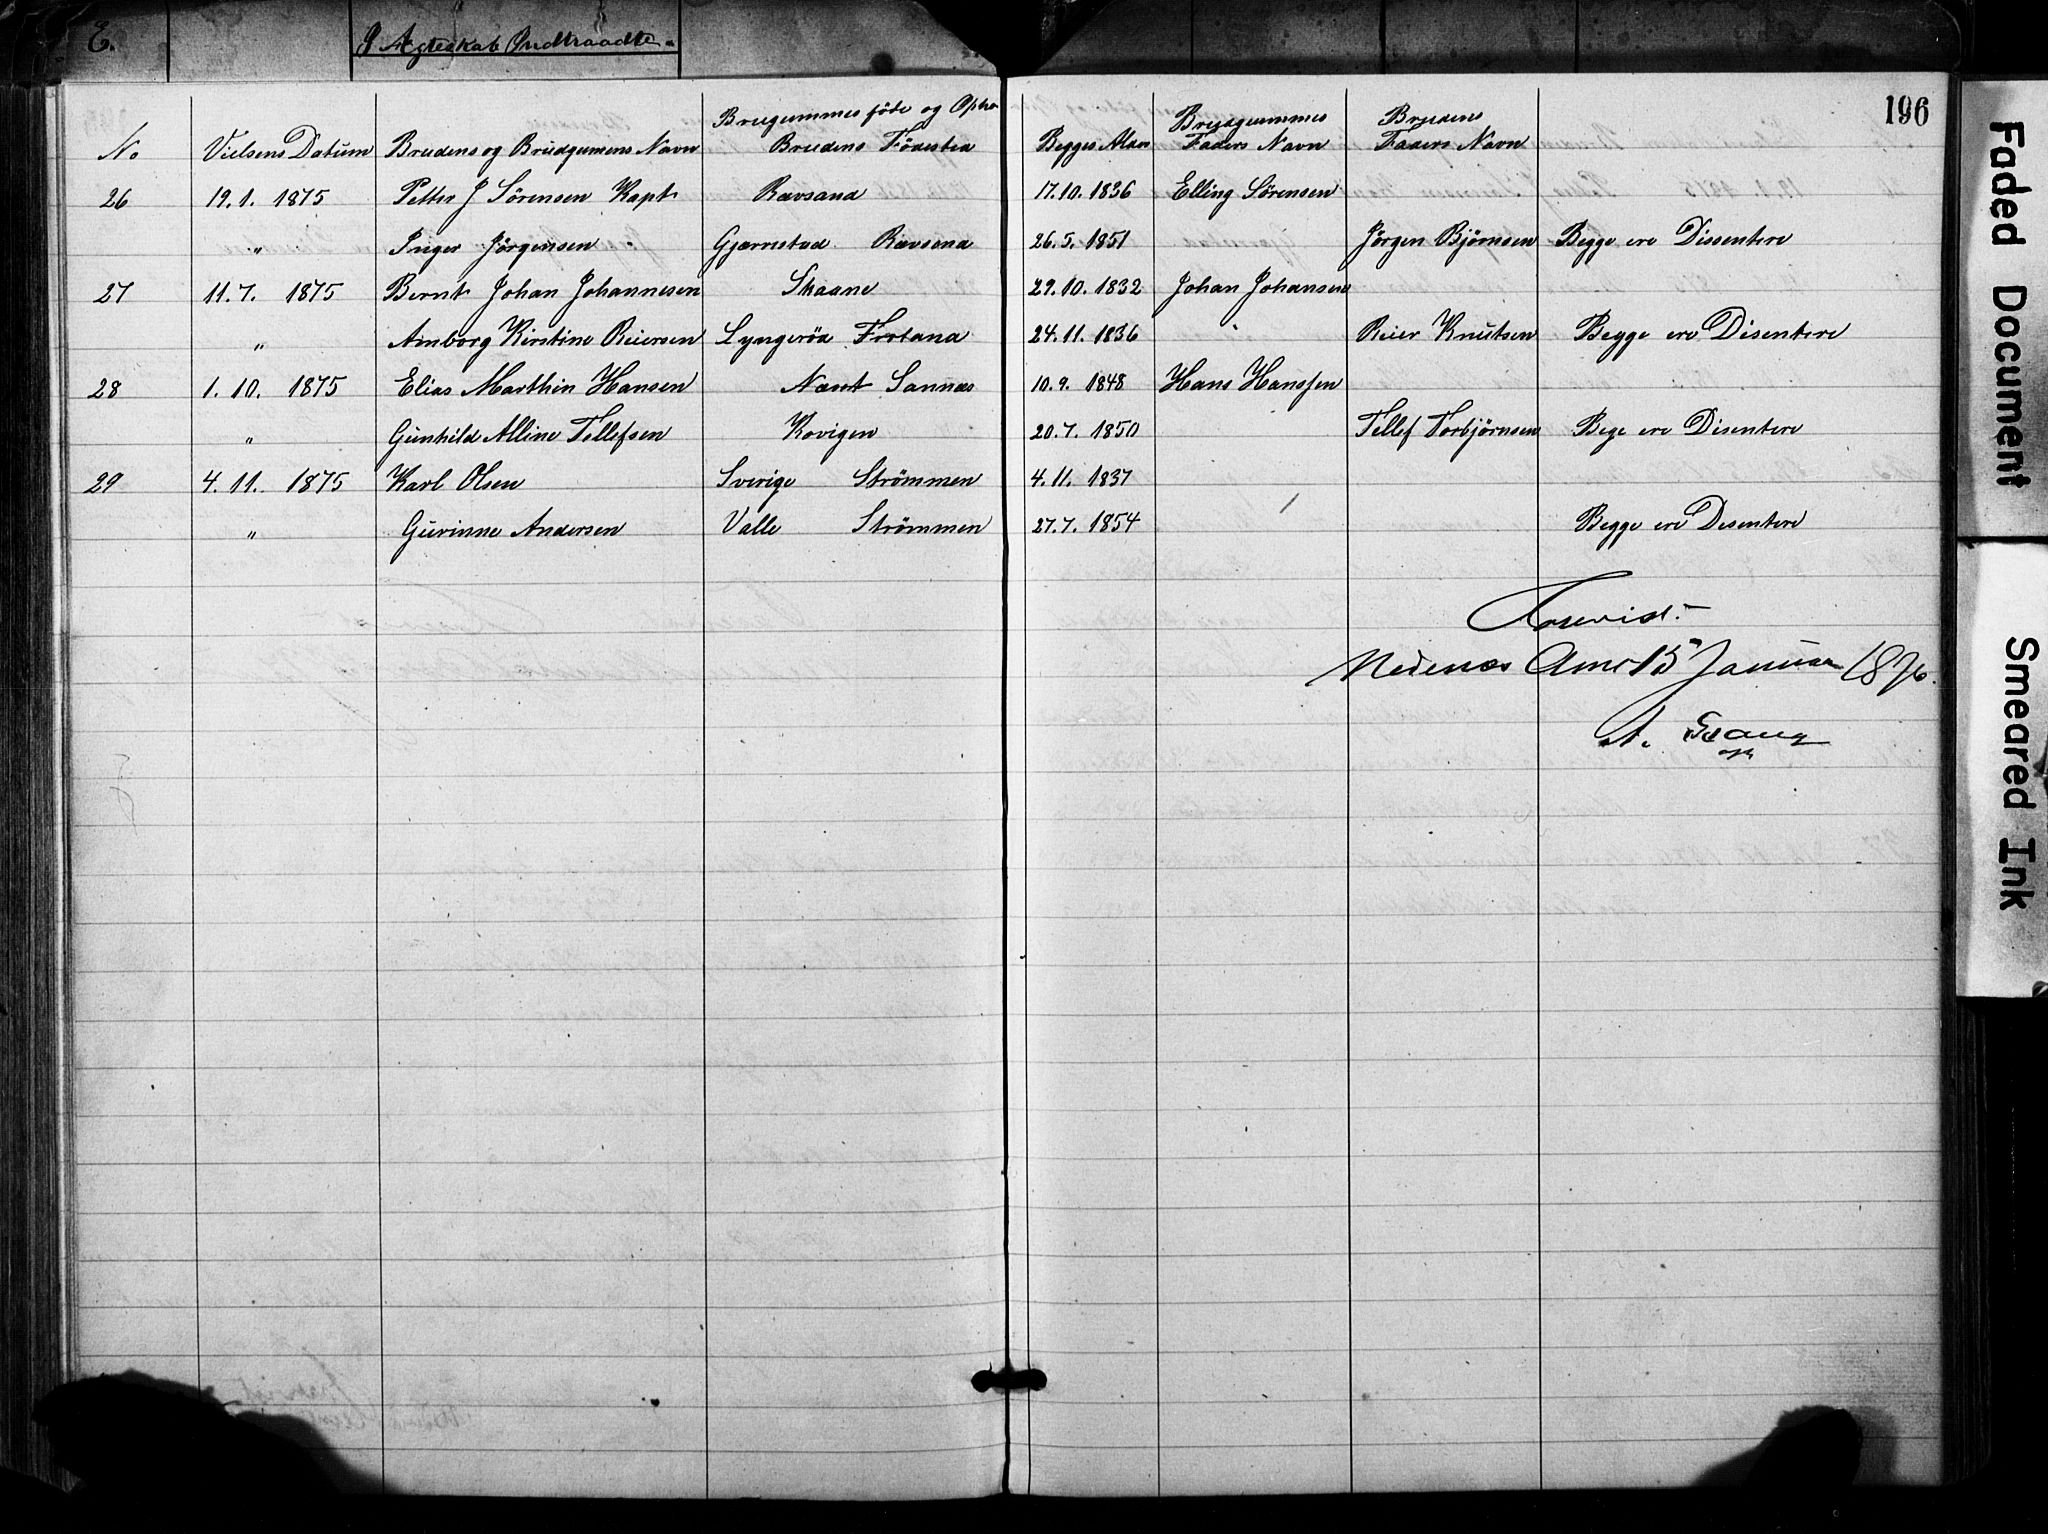 E. I Ægteskab Indtraadte.
196
Brugummes föde og Opho
Brudgummes Brudens
No Vielsens Datum Brudens og Brudgumens Navn Brudens Födested Begges Alder Faders Navn Faders Navn
26 19. 1. 1875 Petter J Sörensen Kapt Ravsand 17. 10. 1836 Elling Sörensen
" Inger Jörgensen Gjærnstad Ravsand 26. 5. 1851 Jörgen Björnsen Begge ere Dissentere
27 11. 7. 1875 Bernt Johan Johannesen Skaane 29. 10. 1832 Johan Johansen
" Amborg Kirstine Reiersen Lyngeröd Froland 24. 11. 1836 " Reier Knutsen Begge ere Disentere
28 1. 10. 1875 Elias Marthin Hansen Næset Sannæs 10. 9. 1848 Hans Hanssen
" Gunhild Alline Tellefsen Kovigen 20. 7. 1850 Tellef Torbjörnsen Bege ere Disentere
29 4. 11. 1875 Karl Olsen Sverige Strömmen 4. 11. 1837
" Gurinne Andersen Valle Strömmen 27. 7. 1854 Begge ere Desentere
Forevist.
Nedenæs Amt 15 Januar 1876.
A.
Faded Document
Smeared Ink